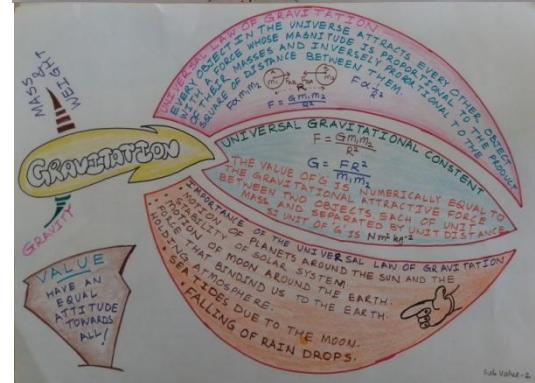 MASS &
WEIGHT
GRAVITATION
GRAVITY
VALUE
HAVE AN
EQUAL
ATTITUDE
TOWARDS
ALL!
UNIVERSAL LAW OF GRAVITATION
EVERY OBJECT IN THE UNIVERSE ATTRACTS EVERY OTHER OBJECT
WITH A FORCE WHOSE MAGNITUDE IS PROPORTIONAL TO THE PRODUCT
OF THEIR MASSES AND INVERSELY PROPORTIONAL TO THE
SQUARE OF DISTANCE BETWEEN THEM.
F∝m₁m₂
m₁
m₂
R
F∝1/R²
F = Gm₁m₂/R²
UNIVERSAL GRAVITATIONAL CONSTENT
F = Gm₁m₂/R²
G = FR²/m₁m₂
THE VALUE OF G IS NUMERICALLY EQUAL TO
THE GRAVITATIONAL ATTRACTIVE FORCE
BETWEEN TWO OBJECTS, EACH OF UNIT
MASS AND SEPARATED BY UNIT DISTANCE
SI UNIT OF 'G' IS Nm² kg⁻²
IMPORTANCE OF THE UNIVERSAL LAW OF GRAVITATION
• MOTION OF PLANETS AROUND THE SUN AND THE
STABILITY OF SOLAR SYSTEM
• MOTION OF MOON AROUND THE EARTH.
• FORCE THAT BINDING US TO THE EARTH.
• HOLDING ATMOSPHERE.
• SEA TIDES DUE TO THE MOON.
• FALLING OF RAIN DROPS.